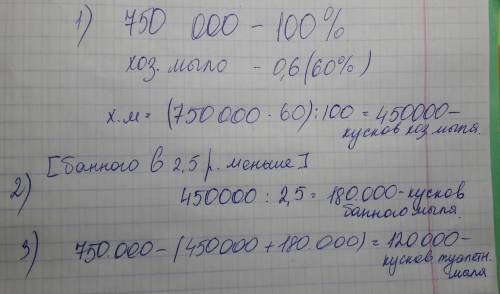 1) 750 000 - 100%
хоз. мыло - 0,6 (60%)
х.м = (750000 · 60) : 100 = 450000 -
кусков хоз мыла.
[банного в 2,5 р. меньше]
2) 450000 : 2,5 = 180.000 - кусков
банного мыла.
3) 750.000 - (450000 + 180.000) = 120.000 -
кусков туалетн.
мыла